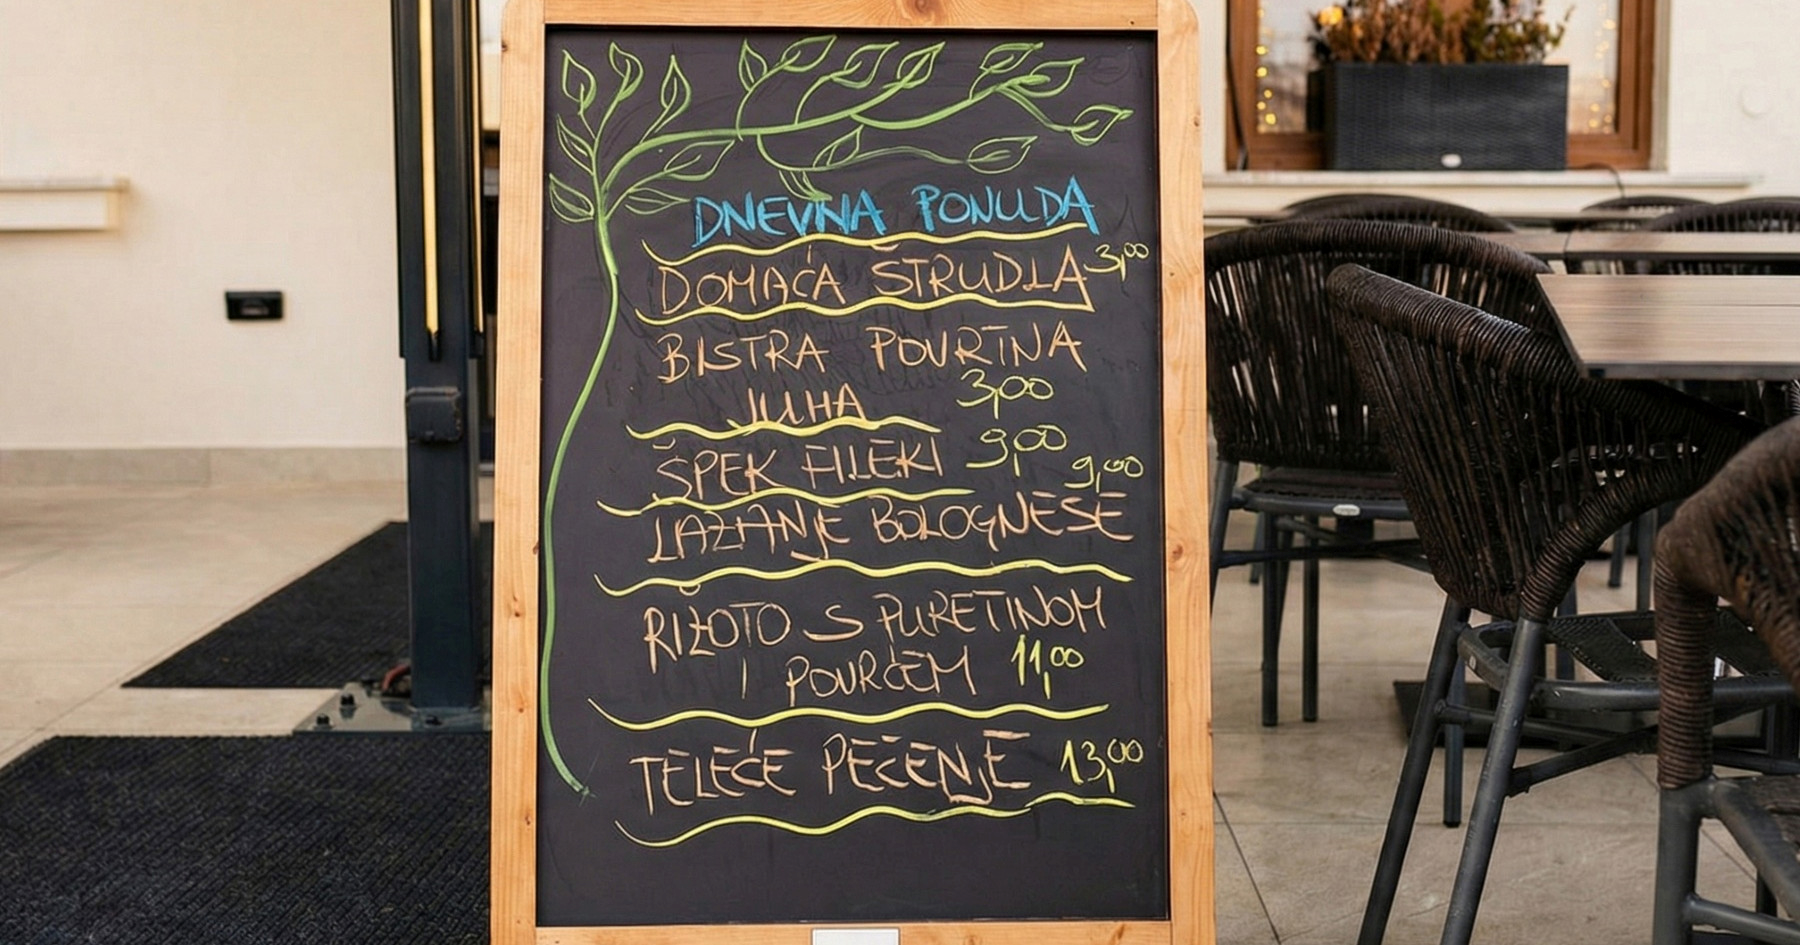 DNEVNA PONUDA
DOMAĆA ŠTRUDLA 3,00
BISTRA POVRTNA
JUHA 3,00
ŠPEK FILEKI 9,00
9,00
LAZANJE BOLOGNESE
RIŽOTO S PURETINOM
I POVRĆEM 11,00
TELEĆE PEČENJE 13,00